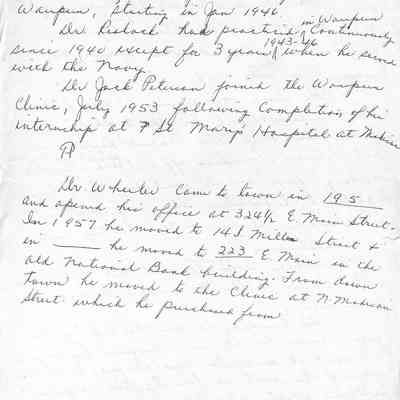 Waupun, Starting in Jan 1946.
Dr. Reslock has practiced in Waupun Continuously
since 1940 except for 3 years 1943-46 when he served
with the Navy.
Dr Jack Peterson joined the Waupun
Clinic, July 1953 following Completion of his
internship at St. Mary's Hospital at Madison
Dr. Wheeler came to town in 195
and opened his office at 324½ E. Main Street.
In 1957 he moved to 14 S. Mill Street &
in ____ he moved to 223 E. Main in the
old National Bank building. From down
town he moved to the Clinic at N. Madison
Street which he purchased from